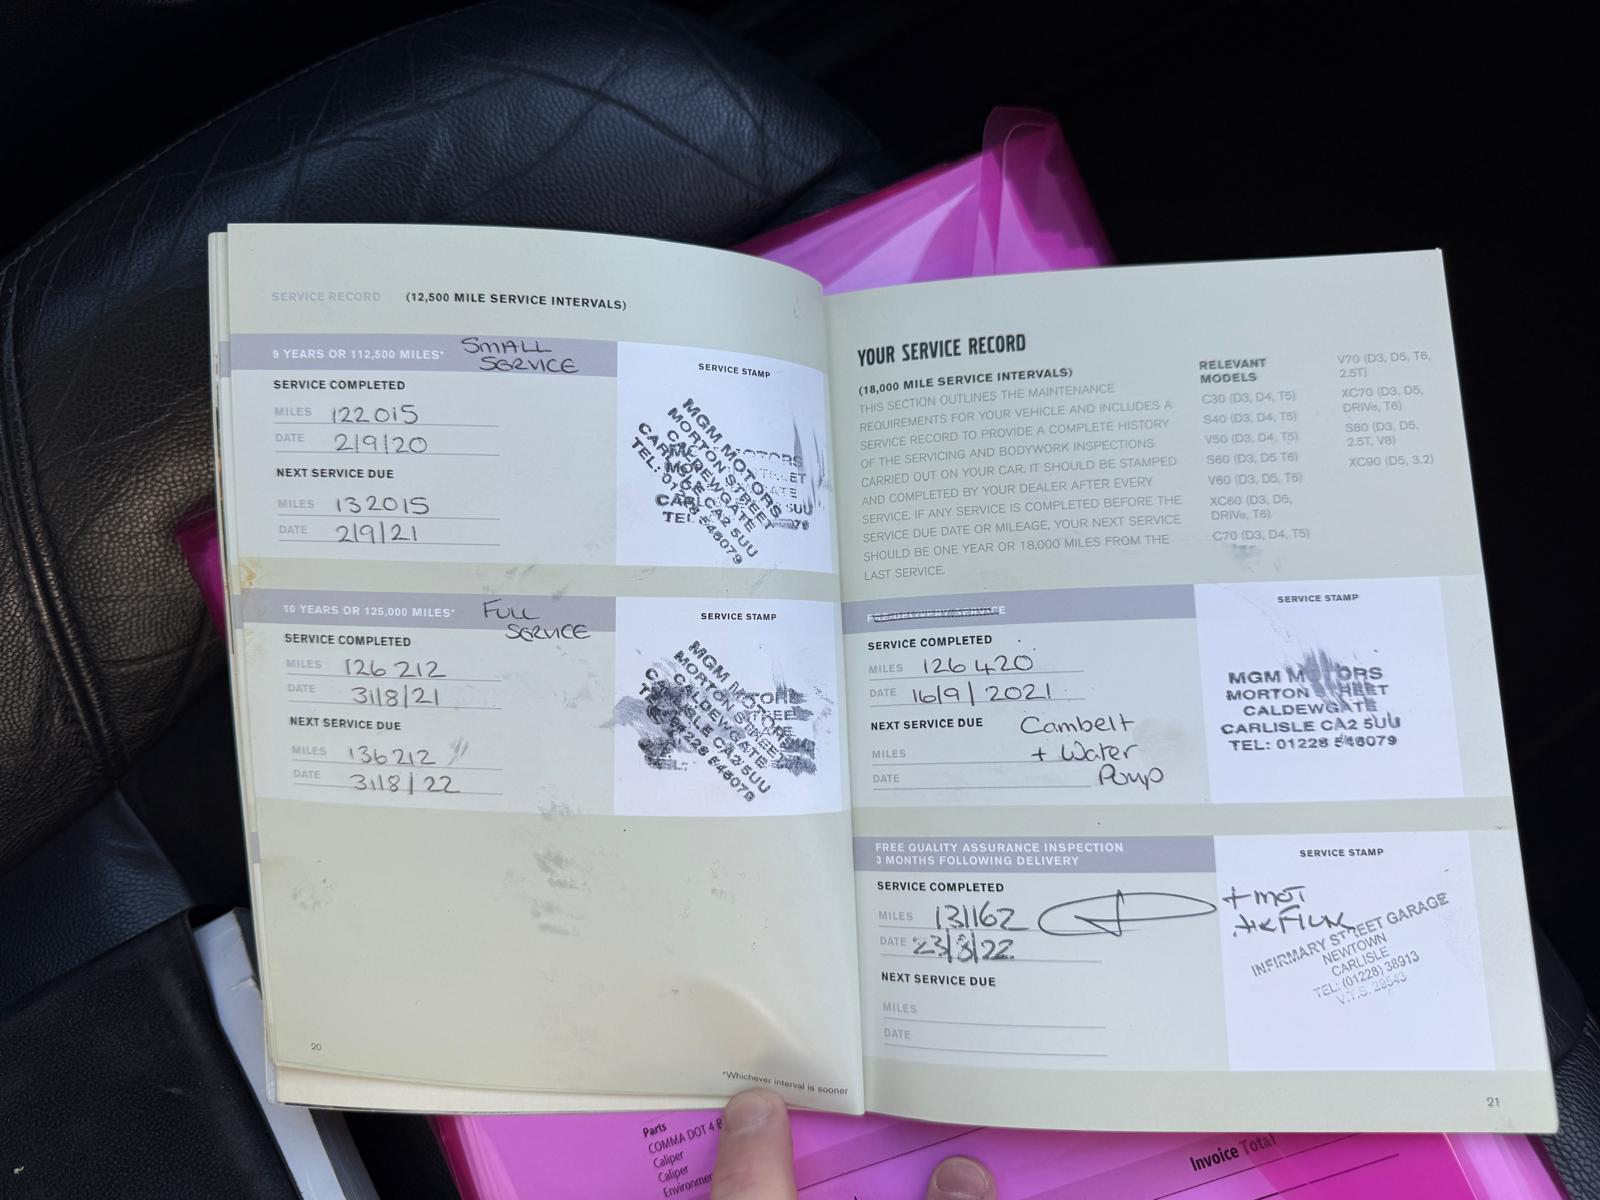 SERVICE RECORD (12,500 MILE SERVICE INTERVALS)
9 YEARS OR 112,500 MILES* SMALL
SERVICE
SERVICE COMPLETED
MILES 122015
DATE 2/9/20
NEXT SERVICE DUE
MILES 132015
DATE 2/9/21
SERVICE STAMP
MGM MOTORS
MORTON STREET
CALDEWGATE
CARLISLE CA2 5UU
TEL: 01228 546079
10 YEARS OR 125,000 MILES* FULL
SERVICE
SERVICE COMPLETED
MILES 126212
DATE 31/8/21
NEXT SERVICE DUE
MILES 136212
DATE 31/8/22
SERVICE STAMP
MGM MOTORS
MORTON STREET
CALDEWGATE
CARLISLE CA2 5UU
TEL: 01228 546079
20
*Whichever interval is sooner
YOUR SERVICE RECORD
(18,000 MILE SERVICE INTERVALS)
THIS SECTION OUTLINES THE MAINTENANCE
REQUIREMENTS FOR YOUR VEHICLE AND INCLUDES A
SERVICE RECORD TO PROVIDE A COMPLETE HISTORY
OF THE SERVICING AND BODYWORK INSPECTIONS
CARRIED OUT ON YOUR CAR. IT SHOULD BE STAMPED
AND COMPLETED BY YOUR DEALER AFTER EVERY
SERVICE. IF ANY SERVICE IS COMPLETED BEFORE THE
SERVICE DUE DATE OR MILEAGE, YOUR NEXT SERVICE
SHOULD BE ONE YEAR OR 18,000 MILES FROM THE
LAST SERVICE.
RELEVANT
MODELS
C30 (D3, D4, T5)
S40 (D3, D4, T5)
V50 (D3, D4, T5)
S60 (D3, D5 T6)
V60 (D3, D5, T6)
XC60 (D3, D5,
DRIVe, T6)
C70 (D3, D4, T5)
V70 (D3, D5, T6,
2.5T)
XC70 (D3, D5,
DRIVe, T6)
S80 (D3, D5,
2.5T, V8)
XC90 (D5, 3.2)
PRE-DELIVERY SERVICE
SERVICE COMPLETED
MILES 126420
DATE 16/9/2021
NEXT SERVICE DUE Cambelt
MILES + Water
DATE Pump
SERVICE STAMP
MGM MOTORS
MORTON STREET
CALDEWGATE
CARLISLE CA2 5UU
TEL: 01228 546079
FREE QUALITY ASSURANCE INSPECTION
3 MONTHS FOLLOWING DELIVERY
SERVICE COMPLETED
MILES 131162
DATE 23/8/22
NEXT SERVICE DUE
MILES
DATE
SERVICE STAMP
+ MOT
INFIRMARY STREET GARAGE
NEWTOWN
CARLISLE
TEL: (01228) 38913
V.T.S. 29543
21
Parts
COMMA DOT 4
Caliper
Caliper
Invoice Total